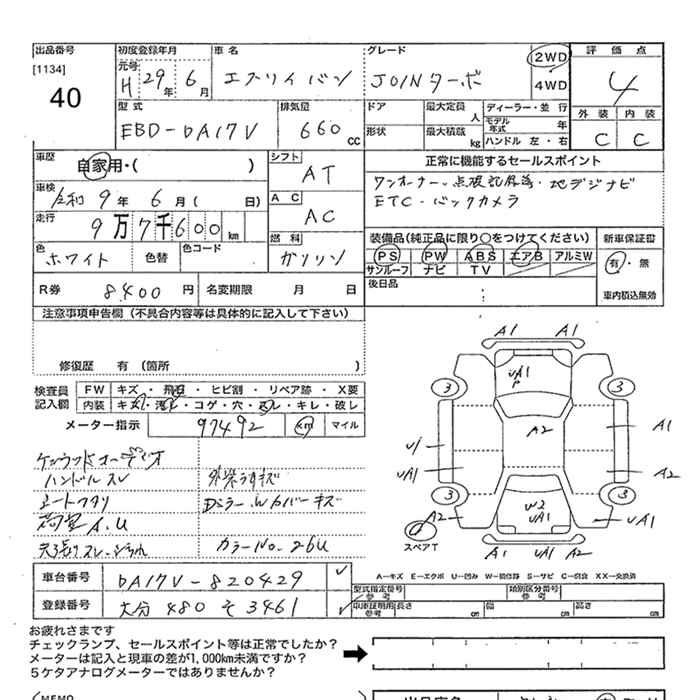 出品番号
[1134]
40
初度登録年月
元号
H 29年 6月
車名
エブリイバン
グレード
JOINターボ
2WD
4WD
評価点
4
外装 内装
C C
型式
EBD-DA17V
排気量
660cc
ドア
形状
最大定員 人
最大積載 kg
ディーラー・並 行
モデル年式 年
ハンドル 左・右
車歴
自家用・( )
車検
令和 9年 6月( 日)
走行
9万7千600km
色
ホワイト
色替
色コード
シフト
AT
AC
AC
燃料
ガソリン
正常に機能するセールスポイント
ワンオーナー・点検記録簿・地デジナビ
ETC・バックカメラ
装備品(純正品に限り○をつけてください)
PS PW ABS エアB アルミW
サンルーフ ナビ TV
後日品
新車保証書
有・無
車内積込無効
R券 8,400円
名変期限 月 日
注意事項申告欄(不具合内容等は具体的に記入して下さい)
修復歴 有(箇所 )
検査員記入欄
FW キズ・飛石・ヒビ割・リペア跡・X要
内装 キズ・汚れ・コゲ・穴・スレ・キレ・破し
メーター指示 97492 km マイル
ケンウッドオーディオ
ハンドルスレ
シートフタリ
荷室A.U
外装うすキズ
DミラーWカバーキズ
カラーNo.26U
A1 A1
UA1
P
3 3
A1
A2
U1
UA1
A2
3 3
W2
UA1
A2
UA1
スペアT
A1 UA1 A2
A－キズ E－エクボ U－凹み W－補修跡 S－サビ C－腐食 XX－交換済
車台番号 DA17V-820429
登録番号 大分 480 そ 3461
型式指定番号
参考
類別区分番号
参考
車庫証明用
参考
長さ cm
幅 cm
高さ cm
お疲れさまです
チェックランプ、セールスポイント等は正常でしたか?
メーターは記入と現車の差が1,000km未満ですか?
5ケタアナログメーターではありませんか?
(MEMO